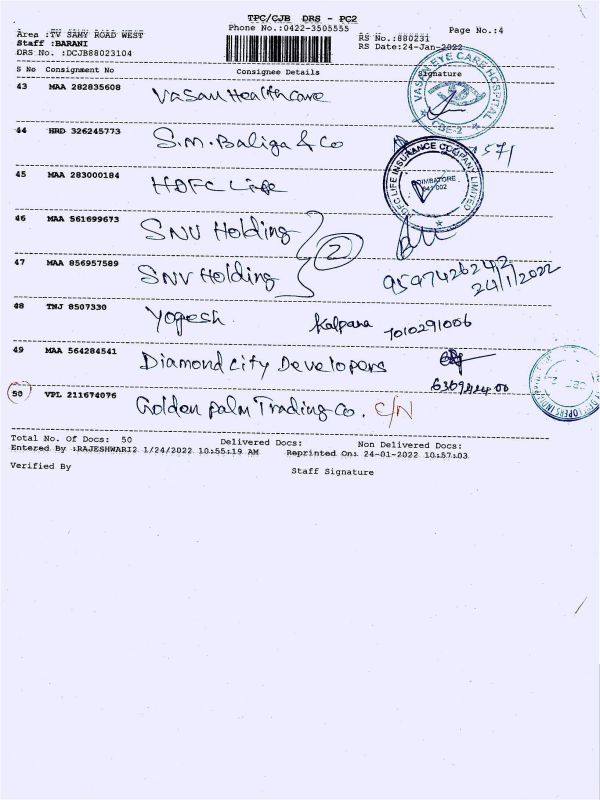 TPC/CJB DRS - PC2
Area :TV SAMY ROAD WEST
Phone No.:0422-3505555
Page No.:4
Staff :BARANI
RS No.:880231
DRS No. :DCJB88023104
RS Date:24-Jan-2022
S No Consignment No Consignee Details Signature
43 MAA 282835608 Vasan Healthcare
VASAN EYE CARE HOSPITAL
CBE-2
44 HRD 326245773 S.M. Baliga & Co
1571
45 MAA 283000184 HDFC Life
HDFC LIFE INSURANCE COMPANY LIMITED
COIMBATORE
641 002
46 MAA 561699673 SNV Holding
2
47 MAA 856957589 SNV Holding
9597426242
24/1/2022
48 TNJ 8507330 Yogesh Kalpana 7010291006
49 MAA 564284541 Diamond city Developers
50 VPL 211674076 Golden palm Trading Co. C/N
Total No. Of Docs: 50 Delivered Docs: Non Delivered Docs:
Entered By :RAJESHWARI2 1/24/2022 10:55:19 AM Reprinted On: 24-01-2022 10:57:03
Verified By Staff Signature